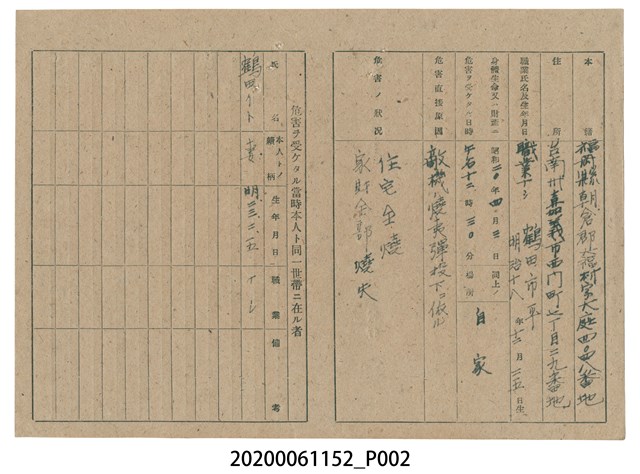 本籍 福岡縣朝倉郡福田村大字大庭四四八番地
住所 台南州嘉義市西門町七丁目二九番地
職業氏名及生年月日 職業ナシ 鶴田市平 明治十八年十二月二五日生
身體生命又ハ財産ニ危害ヲ受ケタル日時 昭和二〇年四月三日 午后十二時三〇分頃 自家
危害直接原因 敵機燒夷彈投下ニ依ル
危害ノ狀況 住宅全燒
家財全部燒失
危害ヲ受ケタル當時本人ト同一世帶ニ在ル者
氏名 本人トノ續柄 生年月日 職業 備考
鶴田 妻 明二三、二、一五 ナシ
20200061152_P002